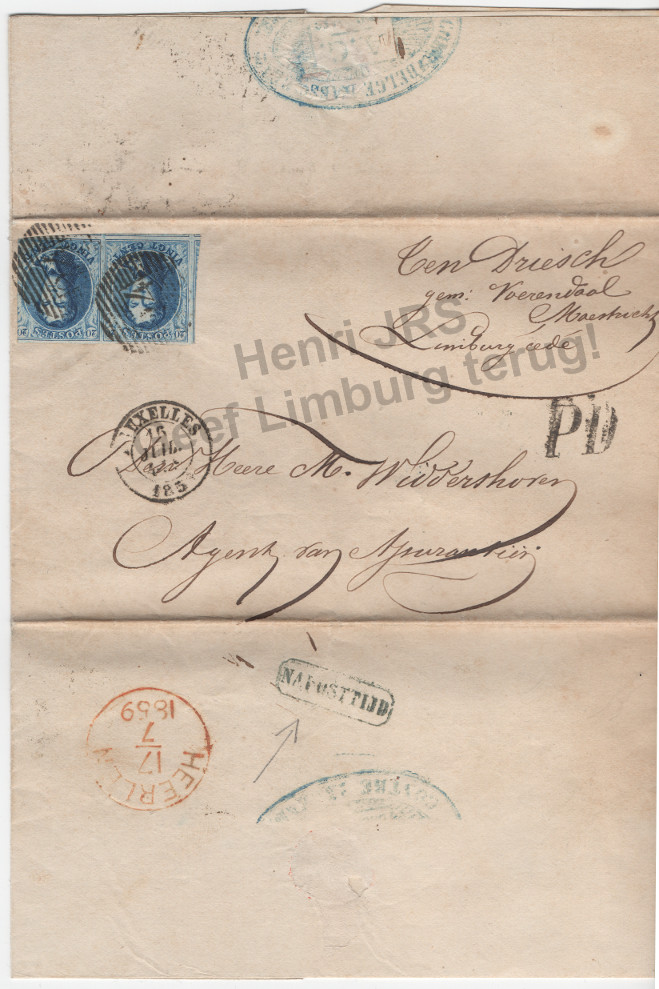 BELGE
POSTES
POSTES
20
20
Ten Driesch
gem: Voerendaal
Maestricht
Limburg cédé
Henri JRS
Geef Limburg terug!
PD
BRUXELLES
15
JUIL.
185
Den Heere M. Widdershoven
Agent van Assurantien
NAPOSTTIJD
HEERLEN
17
7
1859